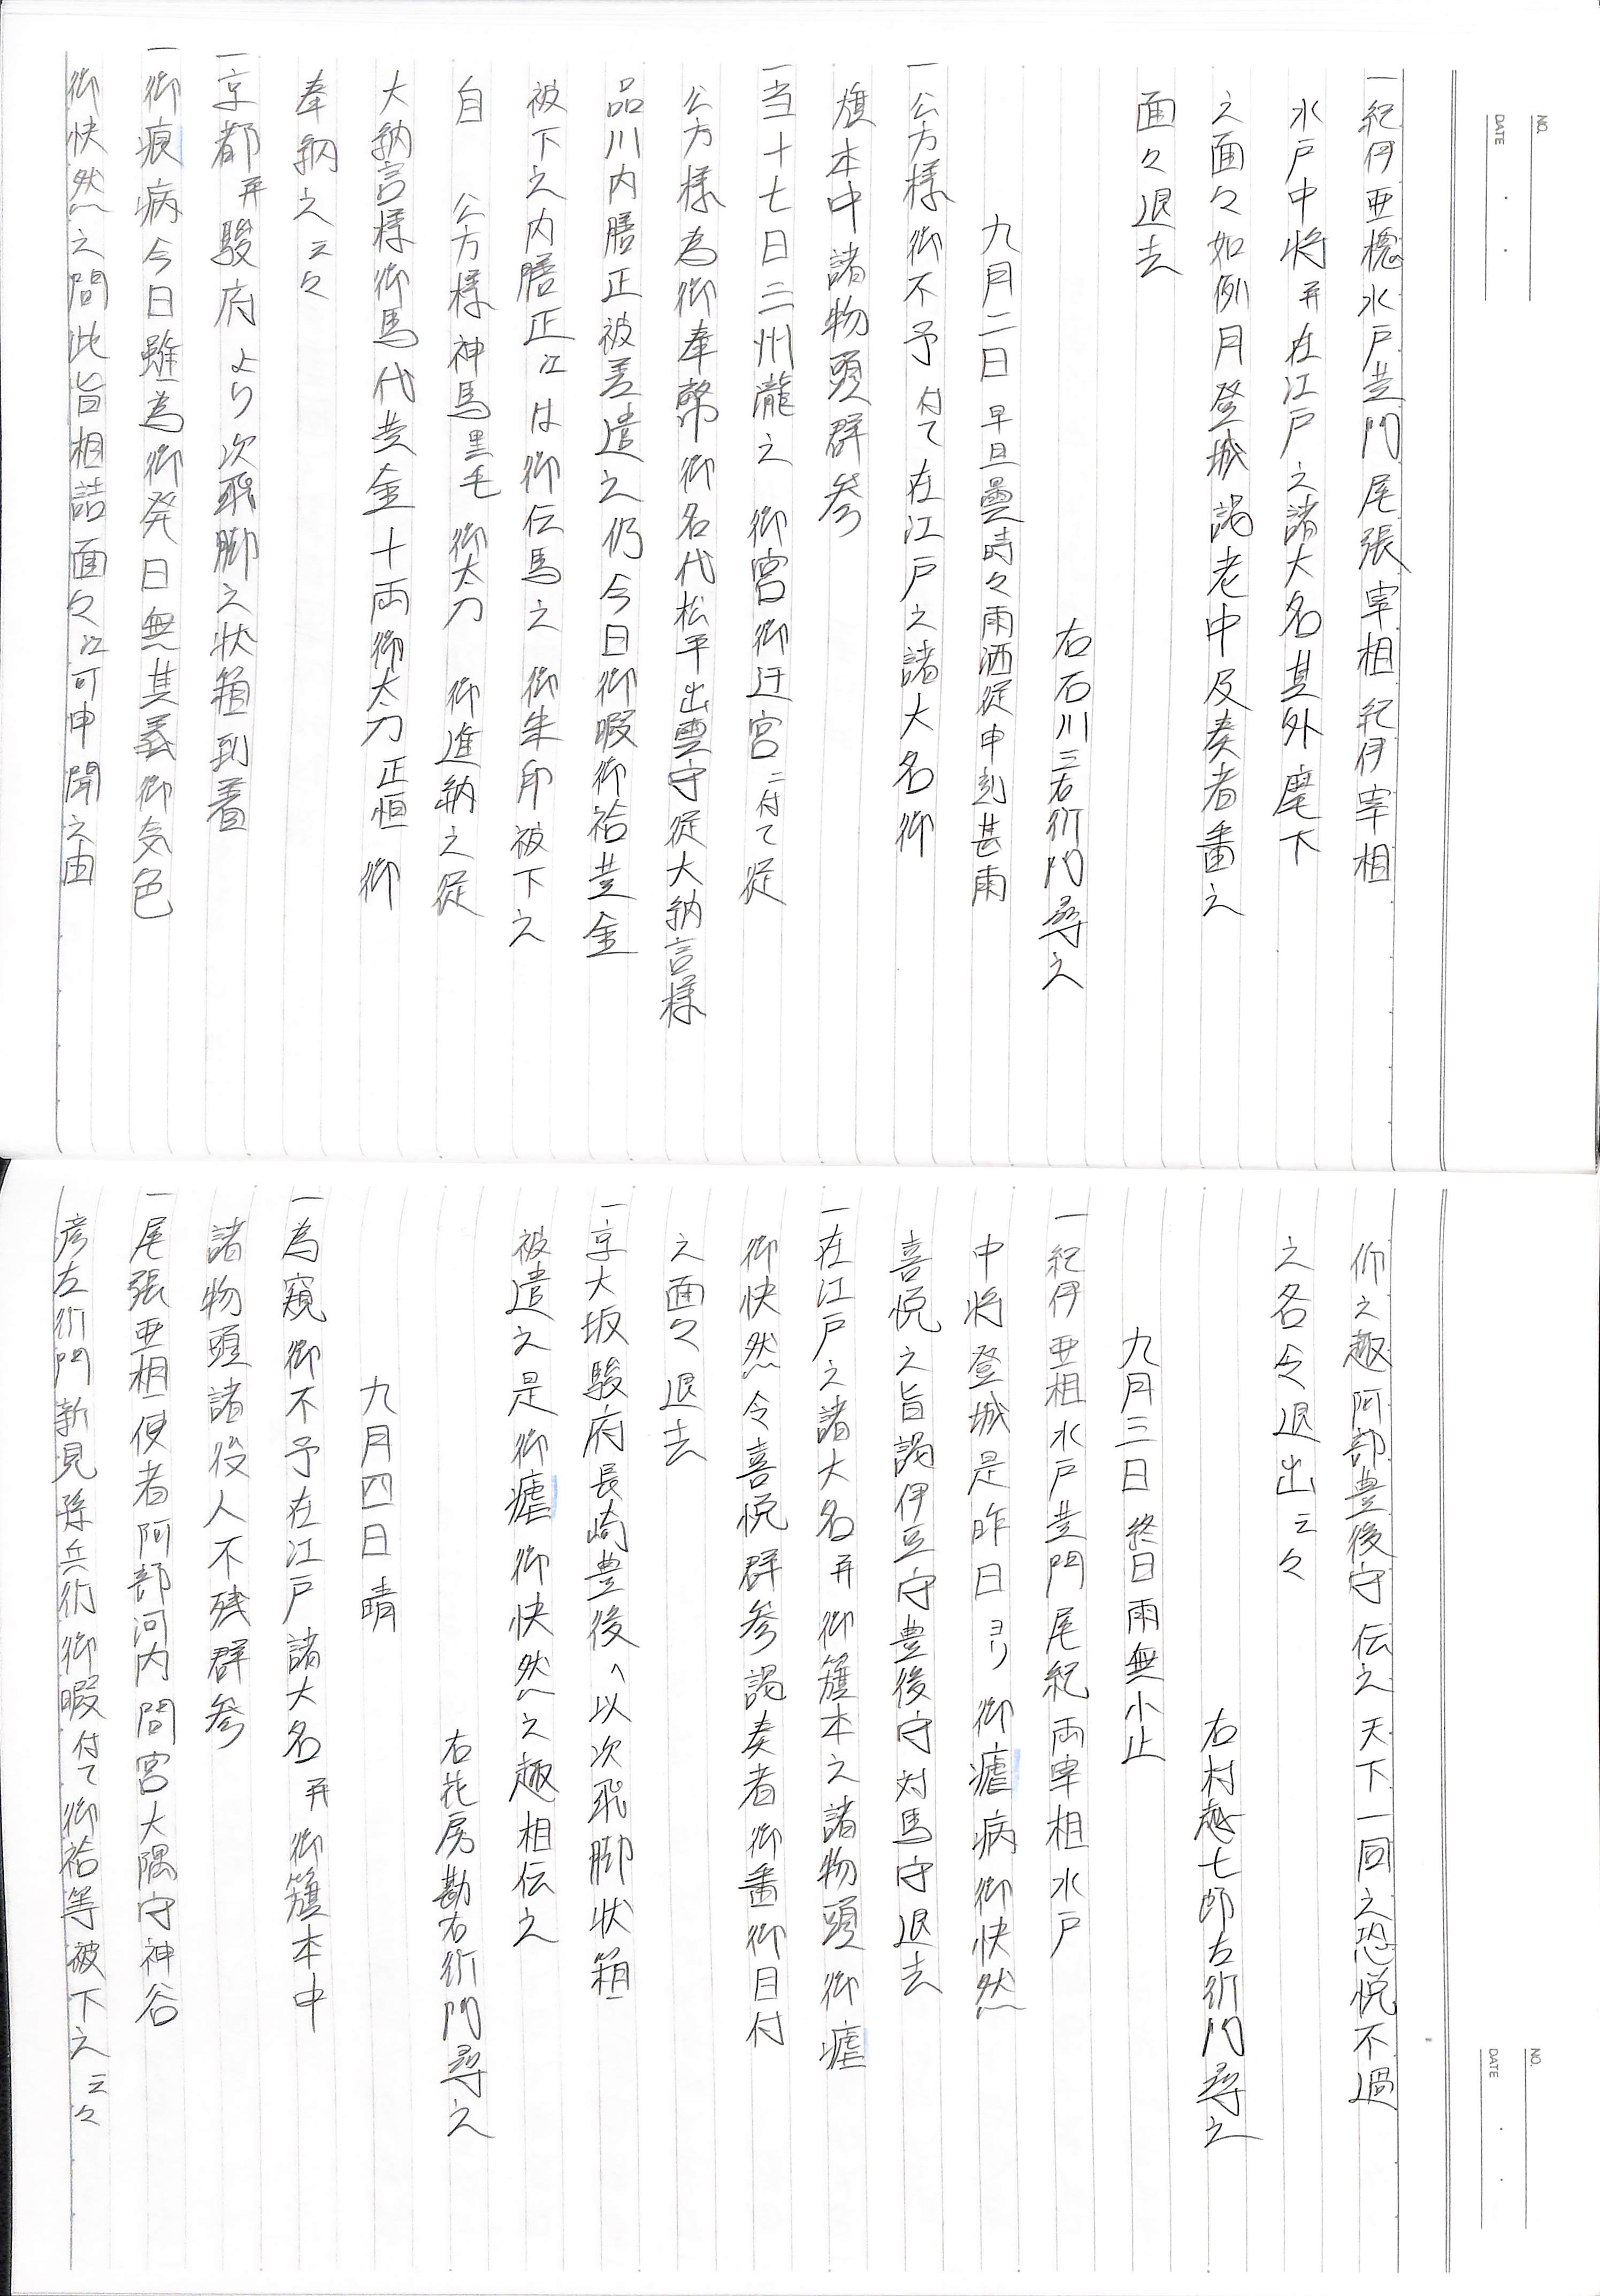 一紀伊亜槐水戸黄門尾張宰相紀伊宰相
水戸中将并在江戸之諸大名其外麾下
之面々如例月登城謁老中及奏者番之
面々退去
右石川三右衛門尋之
九月二日 早旦曇時々雨洒従申刻甚雨
一公方様御不予付て在江戸之諸大名御
旗本中諸物頭群参
一当十七日三州瀧之 御宮御迁宮ニ付て従
公方様為御奉幣御名代松平出雲守従大納言様
品川内膳正被差遣之仍今日御暇御袷黄金
被下之内膳正江は御伝馬之 御朱印被下之
自 公方様神馬黒毛 御太刀 御進納之従
大納言様御馬代黄金十両御太刀正恒 御
奉納之云々
一京都并駿府より次飛脚之状箱到着
一御痕病今日雖為御発日無其義御気色
御快然之間此旨相詰面々江可申聞之由
仰之趣阿部豊後守伝之天下一同之恐悦不過
之名令退出云々
右村越七郎左衛門尋之
九月三日 終日雨無小止
一紀伊亜相水戸黄門尾紀両宰相水戸
中将登城是昨日ヨリ御瘧病御快然
喜悦之旨謁伊豆守豊後守対馬守退去
一在江戸之諸大名并御籏本之諸物頭御瘧
御快然令喜悦群参謁奏者御番御目付
之面々退去
一京大坂駿府長崎豊後へ以次飛脚状箱
被遣之是御瘧御快然之趣相伝之
右花房勘右衛門尋之
九月四日 晴
一為窺御不予在江戸諸大名并御籏本中
諸物頭諸役人不残群参
一尾張亜相使者阿部河内間宮大隅守神谷
彦左衛門新見孫兵衛御暇付て御袷等被下之云々
NO.
DATE
NO.
DATE